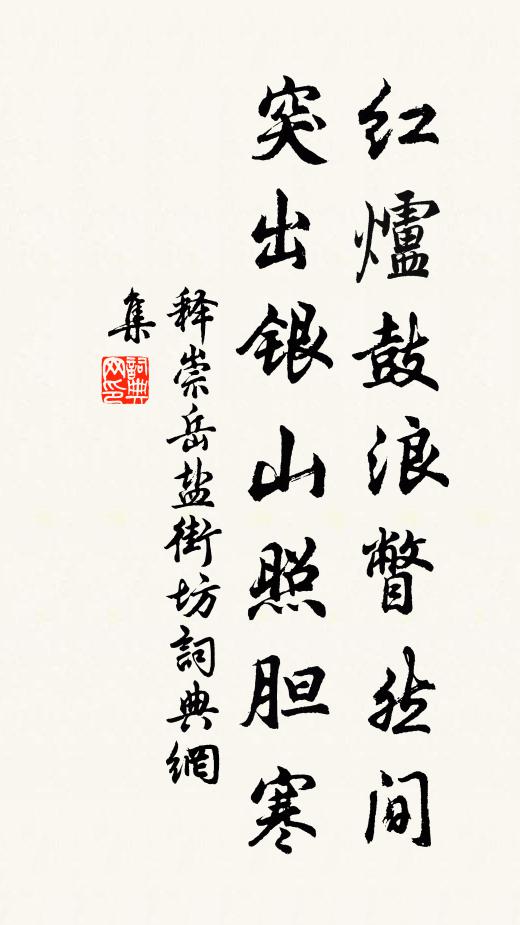 红爐鼓浪瞥然间
突出银山照胆寒
释崇岳盐街坊詞典網
集
詞典
网印